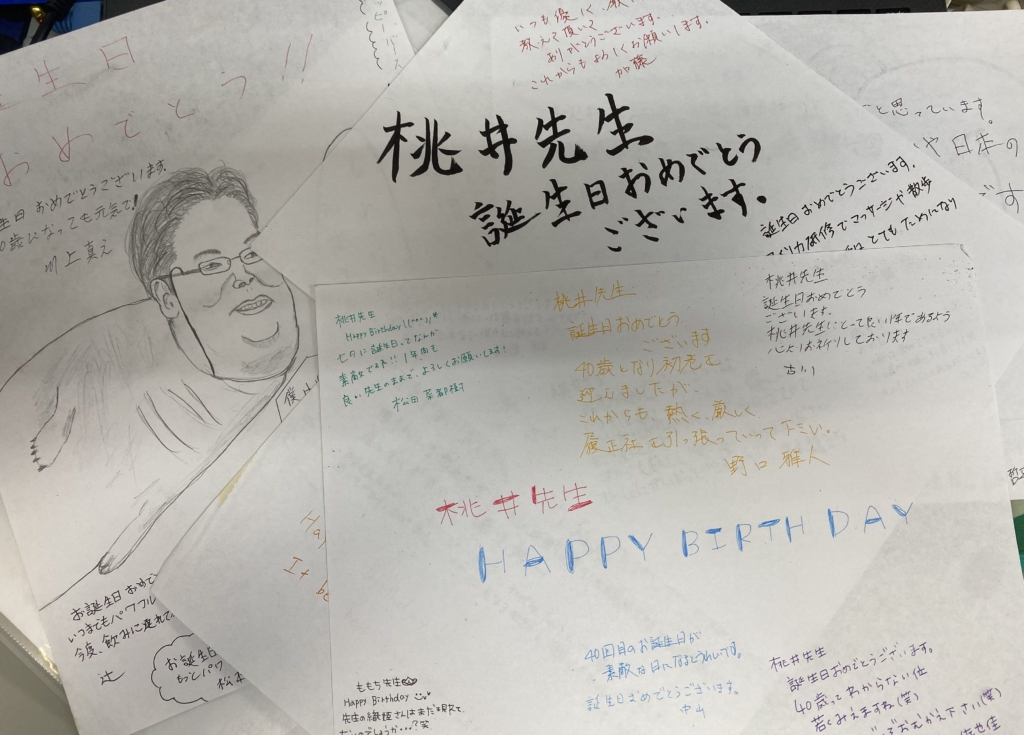 生日
おめでとう!!
生日おめでとうございます。
0歳になっても元気で!
川上真え
いつも優しく
教えて頂いて
ありがとうございます。
これからもよろしくお願いします。
加藤
桃井先生
誕生日おめでとう
ございます。
と思っています。
や日本の
誕生日おめでとうございます。
研修でマッサージや散歩
はとてもためになり
桃井先生
Happy Birthday
七夕に誕生日ってなんか
素敵ですね!!1年尚も
良い先生のままで、よろしくお願いします!
松田
桃井先生
誕生日おめでとう
ございます
40歳となり初老を
迎えましたが、
これからも、熱く、厳しく
履正社を引っ張っていって下さい。
野口雅人
桃井先生
誕生日おめでとう
ございます。
桃井先生にとって良い1年であるよう
心よりお祈りしております
古川
僕は
桃井先生
HAPPY BIRTHDAY
Ha
It
お誕生日おめで
いつまでもパワフル
今度、飲みに連れて
辻
お誕生日
もっとパワ
松本
ももち先生
Happy Birthday
先生の織姫さんはまだ現れて
ないのでしょうか…?笑
40回目のお誕生日が
素敵な日になるとうれしいです。
誕生日おめでとうございます。
中山
桃井先生
誕生日おめでとうございます。
40歳ってわからない位
若くみえますね(笑)
おむかえ下さい(笑)